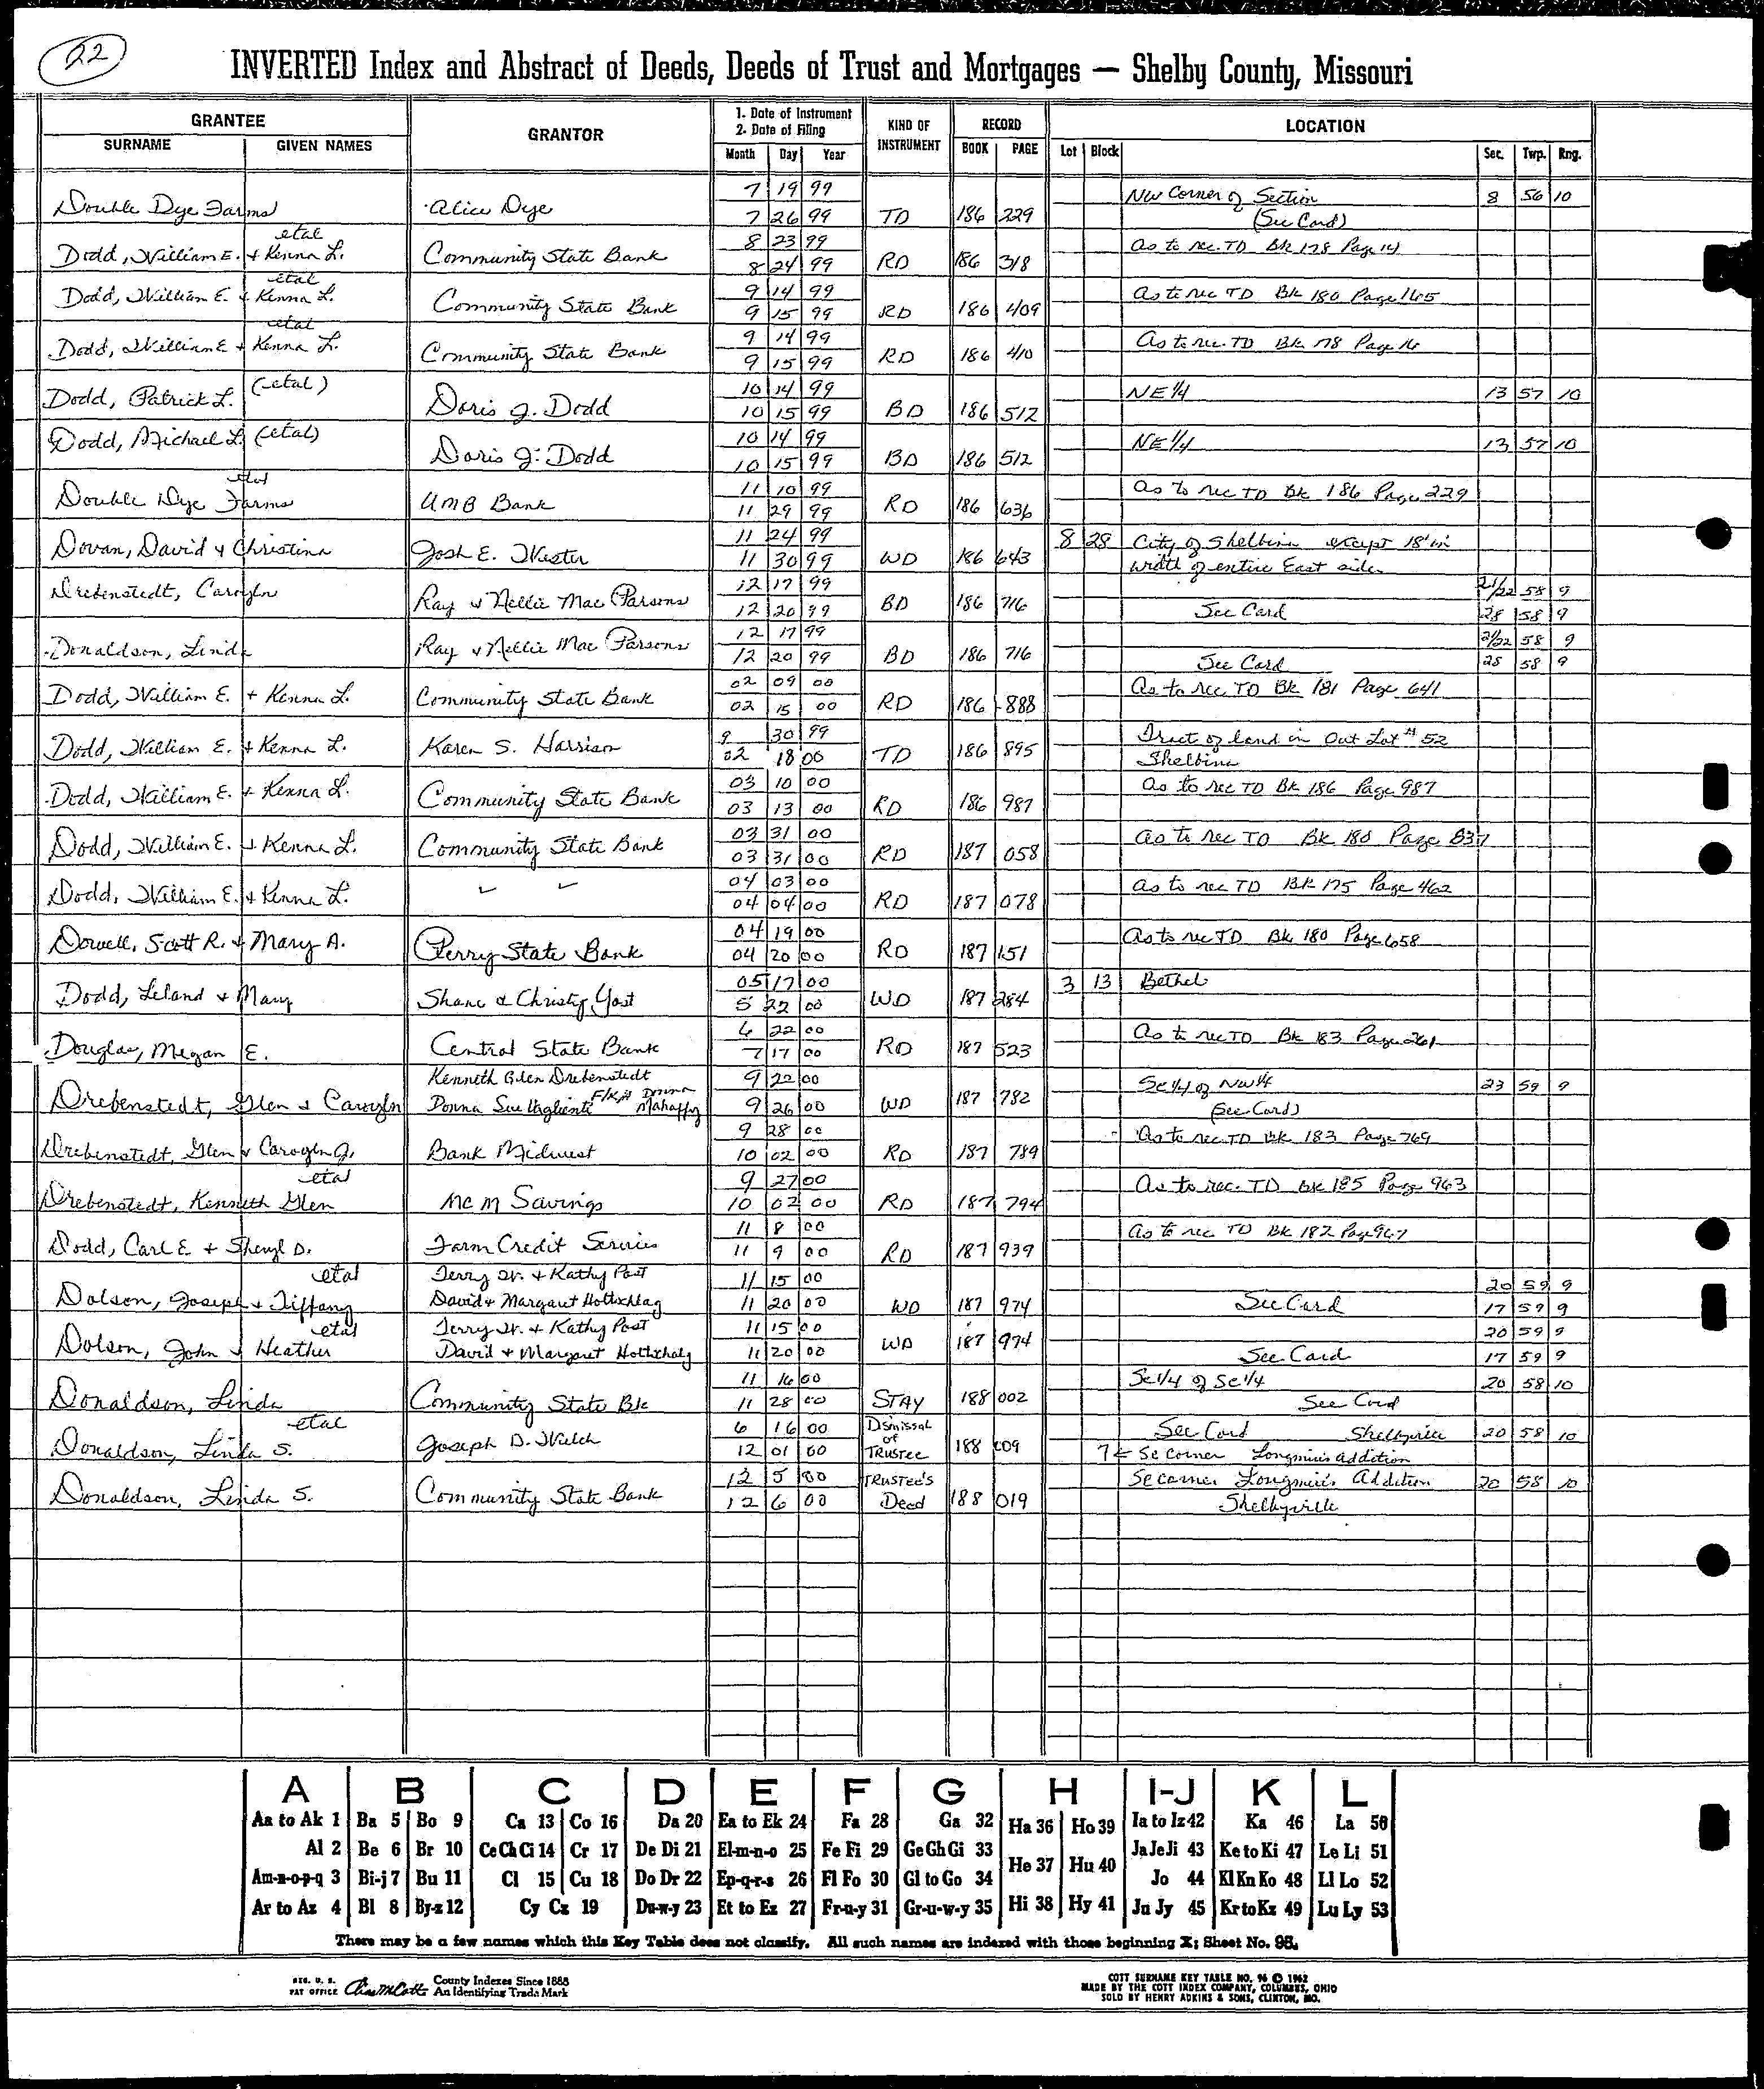 22
INVERTED Index and Abstract of Deeds, Deeds of Trust and Mortgages — Shelby County, Missouri
GRANTEE GRANTOR 1. Date of Instrument 2. Date of Filing KIND OF INSTRUMENT RECORD LOCATION
SURNAME GIVEN NAMES Month Day Year BOOK PAGE Lot Block Sec. Twp. Rng.
7 19 99 NW Corner of Section 8 56 10
Double Dye Farms Alice Dye 7 26 99 TD 186 229 (See Card)
etal 8 23 99 As to rec. TD Bk 178 Page 14
Dodd, William E. + Kenna L. Community State Bank 8 24 99 RD 186 318
etal 9 14 99 As to rec TD Bk 180 Page 165
Dodd, William E. + Kenna L. Community State Bank 9 15 99 RD 186 409
etal 9 14 99 As to rec. TD Bk 178 Page 14
Dodd, William E + Kenna L. Community State Bank 9 15 99 RD 186 410
(etal) 10 14 99 NE 1/4 13 57 10
Dodd, Patrick L. Doris J. Dodd 10 15 99 BD 186 512
Dodd, Michael L. (etal) 10 14 99 NE 1/4 13 57 10
Doris J. Dodd 10 15 99 BD 186 512
etal 11 10 99 As to rec TD Bk 186 Page 229
Double Dye Farms UMB Bank 11 29 99 RD 186 636
11 24 99 8 28 City of Shelbina except 18' in
Dovan, David + Christina Josh E. Wester 11 30 99 WD 186 643 width of entire East side
Drebenstedt, Carolyn 12 17 99 21/22 58 9
Ray + Nellie Mae Parsons 12 20 99 BD 186 716 See Card 28 58 9
12 17 99 21/22 58 9
Donaldson, Linda Ray + Nellie Mae Parsons 12 20 99 BD 186 716 See Card 28 58 9
02 09 00 As to rec TD Bk 181 Page 641
Dodd, William E. + Kenna L. Community State Bank 02 15 00 RD 186 888
9 30 99 Tract of land in Out Lot # 52
Dodd, William E. + Kenna L. Karen S. Harrison 02 18 00 TD 186 895 Shelbina
03 10 00 As to rec TD Bk 186 Page 987
Dodd, William E. + Kenna L. Community State Bank 03 13 00 RD 186 987
03 31 00 As to rec TD Bk 180 Page 837
Dodd, William E. + Kenna L. Community State Bank 03 31 00 RD 187 058
04 03 00 As to rec TD Bk 175 Page 462
Dodd, William E. + Kenna L. 04 04 00 RD 187 078
04 19 00 As to rec TD Bk 180 Page 658
Dowell, Scott R. + Mary A. Perry State Bank 04 20 00 RD 187 151
05 17 00 3 13 Bethel
Dodd, Leland + Mary Shane & Christy Yost 5 22 00 WD 187 284
6 22 00 As to rec TD Bk 183 Page 261
Douglas, Megan E. Central State Bank 7 17 00 RD 187 523
Kenneth Glen Drebenstedt 9 22 00 SE 1/4 of NW 1/4 23 59 9
Drebenstedt, Glen & Carolyn Donna Sue Uaglienti F/K/A Donna Mahaffy 9 26 00 WD 187 782 (See Card)
9 28 00 As to rec TD Bk 183 Page 769
Drebenstedt, Glen & Carolyn J. Bank Midwest 10 02 00 RD 187 789
etal 9 27 00 As to rec. TD Bk 185 Page 943
Drebenstedt, Kenneth Glen MCM Savings 10 02 00 RD 187 794
11 8 00 As to rec TD Bk 182 Page 967
Dodd, Carl E. + Sheryl D. Farm Credit Services 11 9 00 RD 187 939
etal Terry W. + Kathy Post 11 15 00 20 59 9
Dolson, Joseph + Tiffany David + Margaret Hottschlag 11 20 00 WD 187 974 See Card 17 59 9
etal Terry W. + Kathy Post 11 15 00 20 59 9
Dolson, John & Heather David + Margaret Hottschalg 11 20 00 WD 187 974 See Card 17 59 9
11 16 00 SE 1/4 of SE 1/4 20 58 10
Donaldson, Linda Community State Bk 11 28 00 STAY 188 002 See Card
etal 6 16 00 Dsmissal of See Card Shelbyville 20 58 10
Donaldson, Linda S. Joseph D. Welch 12 01 00 TRUSTEE 188 009 SE corner Longmire's Addition
12 5 00 TRUSTEE'S SE corner Longmire's Addition 20 58 10
Donaldson, Linda S. Community State Bank 12 6 00 Deed 188 019 Shelbyville
A B C D E F G H I-J K L
Aa to Ak 1 Ba 5 Bo 9 Ca 13 Co 16 Da 20 Ea to Ek 24 Fa 28 Ga 32 Ha 36 Ho 39 Ia to Iz 42 Ka 46 La 50
Al 2 Be 6 Br 10 Ce Ch Ci 14 Cr 17 De Di 21 El-m-n-o 25 Fe Fi 29 Ge Gh Gi 33 He 37 Hu 40 Ja Je Ji 43 Ke to Ki 47 Le Li 51
Am-n-o-p-q 3 Bi-j 7 Bu 11 Cl 15 Cu 18 Do Dr 22 Ep-q-r-s 26 Fl Fo 30 Gl to Go 34 Jo 44 Kl Kn Ko 48 Ll Lo 52
Ar to Az 4 Bl 8 By-z 12 Cy Cz 19 Du-w-y 23 Et to Ez 27 Fr-u-y 31 Gr-u-w-y 35 Hi 38 Hy 41 Ju Jy 45 Kr to Kz 49 Lu Ly 53
There may be a few names which this Key Table does not classify. All such names are indexed with those beginning X; Sheet No. 95.
REG. U. S. PAT OFFICE County Indexes Since 1888 An Identifying Trade Mark
COTT SURNAME KEY TABLE NO. 96 © 1962
MADE BY THE COTT INDEX COMPANY, COLUMBUS, OHIO
SOLD BY HENRY ADKINS & SONS, CLINTON, MO.